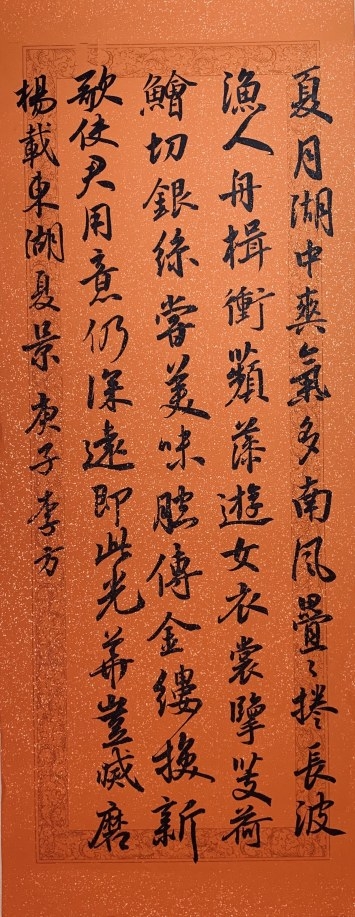 夏月湖中爽氣多南風疊〻捲長波
漁人舟楫衝蘋藻遊女衣裳擘芰荷
鱠切銀絲嘗美味腔傳金縷換新
歌使君用意仍深遠即此光華豈滅磨
楊載東湖夏景 庚子 李方